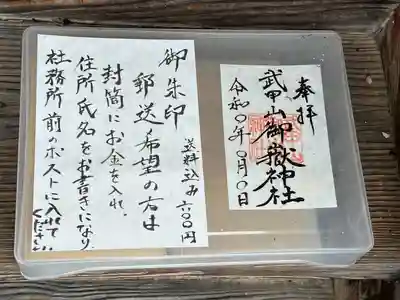 奉拝
武甲山御嶽神社
令和〇年〇月〇日
御朱印
郵送希望の方は
送料込み六〇〇円
封筒にお金を入れ
住所氏名をお書きになり
社務所前のポストに入れて
ください